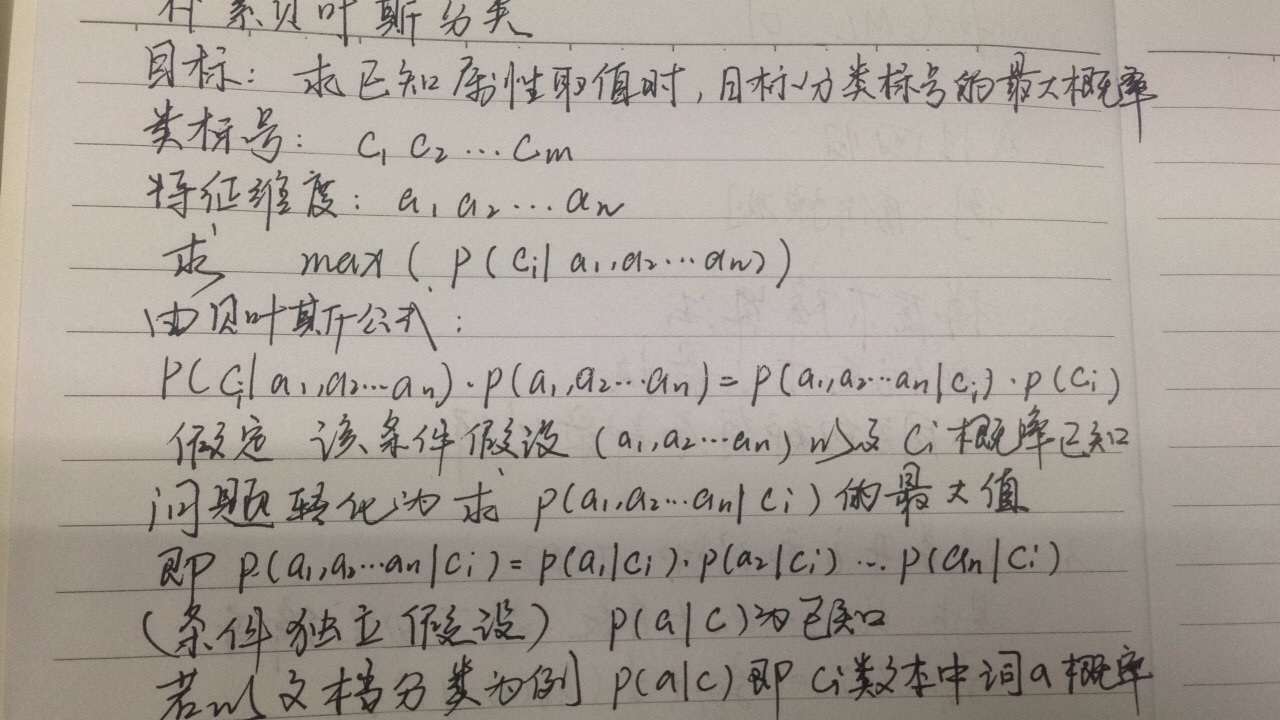 朴素贝叶斯分类
目标: 求已知属性取值时,目标分类标号的最大概率
类标号: C₁ C₂ ⋯ Cm
特征维度: a₁ a₂ ⋯ an
求 max ( P ( Ci | a₁,a₂⋯an) )
由贝叶斯公式:
P( Ci | a₁,a₂⋯an) · P(a₁,a₂⋯an) = P(a₁,a₂⋯an | Ci) · P(Ci)
假定 该条件假设 (a₁,a₂⋯an) 以及 Ci 概率已知
问题转化为求 P(a₁,a₂⋯an | Ci) 的最大值
即 P(a₁,a₂⋯an | Ci) = P(a₁|Ci) · P(a₂|Ci) ⋯ P(an | Ci)
(条件独立假设) P(a|C)为已知
若以文档分类为例 P(a|C) 即 Ci类文本中词a概率